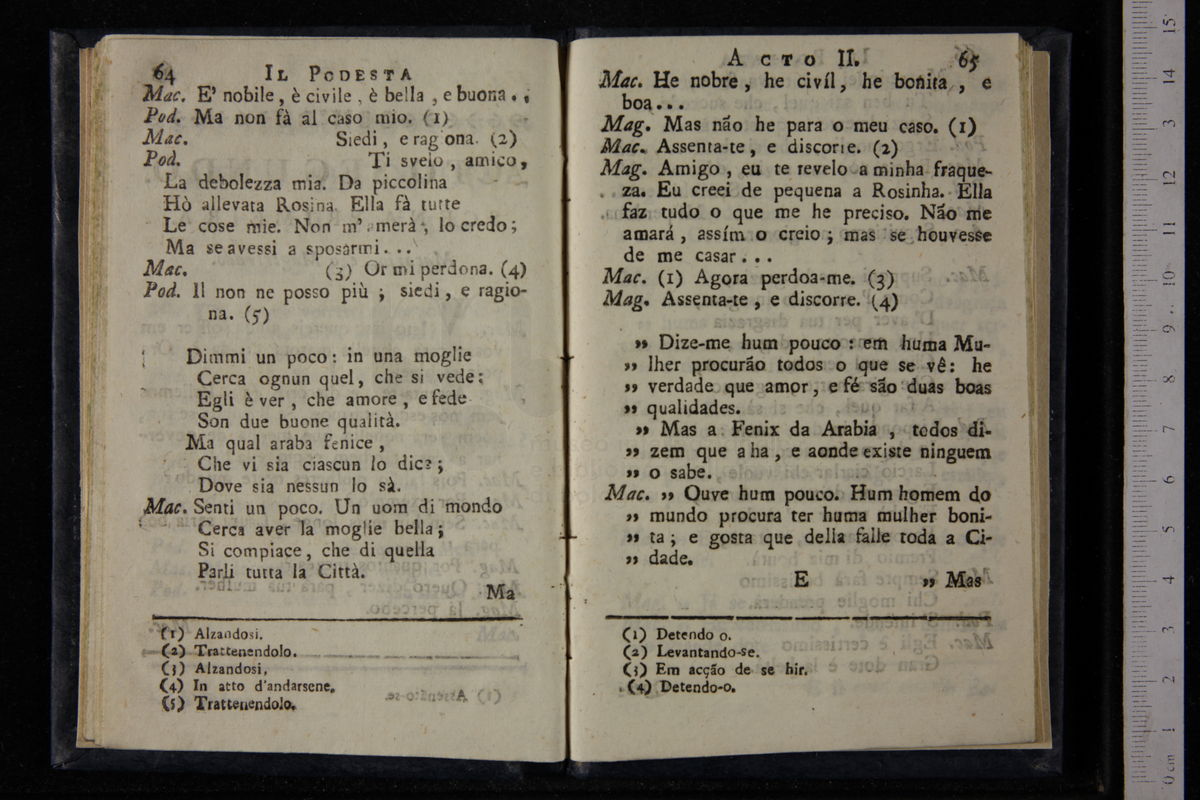 64 IL PODESTA
Mac. E' nobile, è civile, è bella, e buona..
Pod. Ma non fà al caso mio. (1)
Mac. Siedi, e ragiona. (2)
Pod. Ti svelo, amico,
La debolezza mia. Da piccolina
Hò allevata Rosina. Ella fà tutte
Le cose mie. Non m'amerà, lo credo;
Ma se avessi a sposarmi...
Mac. (3) Or mi perdona. (4)
Pod. Il non ne posso più; siedi, e ragio-
na. (5)
Dimmi un poco: in una moglie
Cerca ognun quel, che si vede:
Egli è ver, che amore, e fede
Son due buone qualità.
Ma qual araba fenice,
Che vi sia ciascun lo dice;
Dove sia nessun lo sà.
Mac. Senti un poco. Un uom di mondo
Cerca aver la moglie bella;
Si compiace, che di quella
Parli tutta la Città.
Ma
(1) Alzandosi.
(2) Trattenendolo.
(3) Alzandosi.
(4) In atto d'andarsene.
(5) Trattenendolo.
ACTO II. 65
Mac. He nobre, he civíl, he bonita, e
boa...
Mag. Mas não he para o meu caso. (1)
Mac. Assenta-te, e discorre. (2)
Mag. Amigo, eu te revelo a minha fraque-
za. Eu creei de pequena a Rosinha. Ella
faz tudo o que me he preciso. Não me
amará, assím o creio; mas se houvesse
de me casar...
Mac. (1) Agora perdoa-me. (3)
Mag. Assenta-te, e discorre. (4)
„ Dize-me hum pouco: em huma Mu-
„ lher procurão todos o que se vê: he
„ verdade que amor, e fé são duas boas
„ qualidades.
„ Mas a Fenix da Arabia, todos di-
„ zem que a ha, e aonde existe ninguem
„ o sabe.
Mac. „ Ouve hum pouco. Hum homem do
„ mundo procura ter huma mulher boni-
„ ta; e gosta que della falle toda a Ci-
„ dade.
E „ Mas
(1) Detendo o.
(2) Levantando-se.
(3) Em acção de se hir.
(4) Detendo-o.
0 cm 1 2 3 4 5 6 7 8 9 10 11 12 13 14 15